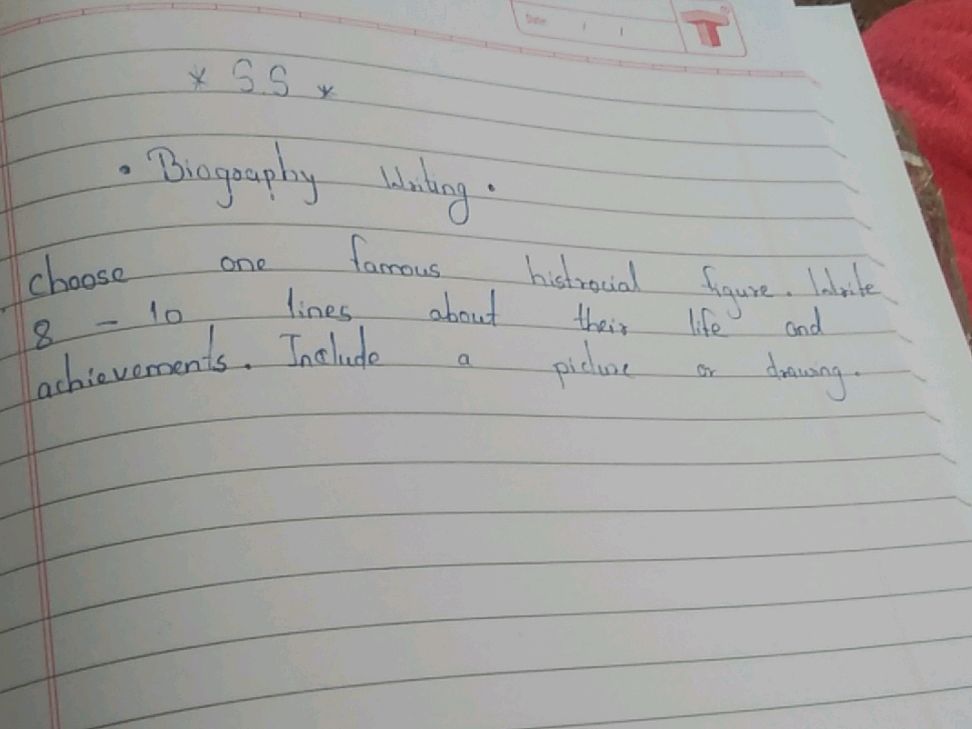 Date: / /
T
* S.S *
• Biography Writing •
choose one famous histrocial figure. Write
8 - 10 lines about their life and
achievements. Include a picture or drawing.